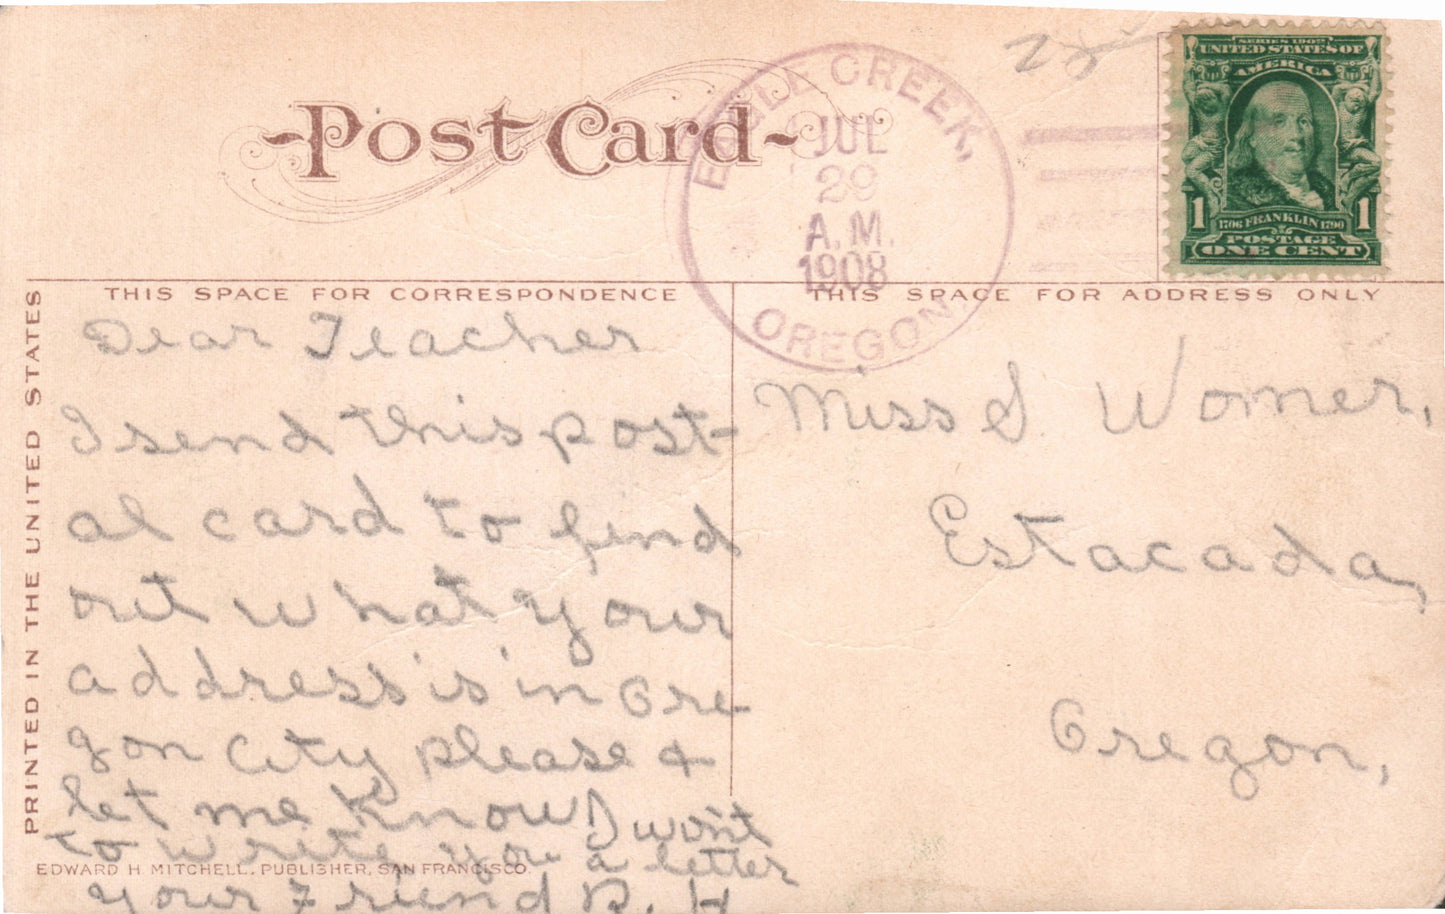 Post Card
EAGLE CREEK,
JUL
29
A.M.
1908
OREGON
SERIES 1902
UNITED STATES OF
AMERICA
1 1
1706 FRANKLIN 1790
POSTAGE
ONE CENT
PRINTED IN THE UNITED STATES
THIS SPACE FOR CORRESPONDENCE
Dear Teacher
I send this post-
al card to find
out what your
address is in Ore-
gon City please &
let me know I won't
to write you a letter
your Friend
EDWARD H. MITCHELL, PUBLISHER, SAN FRANCISCO.
THIS SPACE FOR ADDRESS ONLY
Miss S Womer,
Estacada,
Oregon,